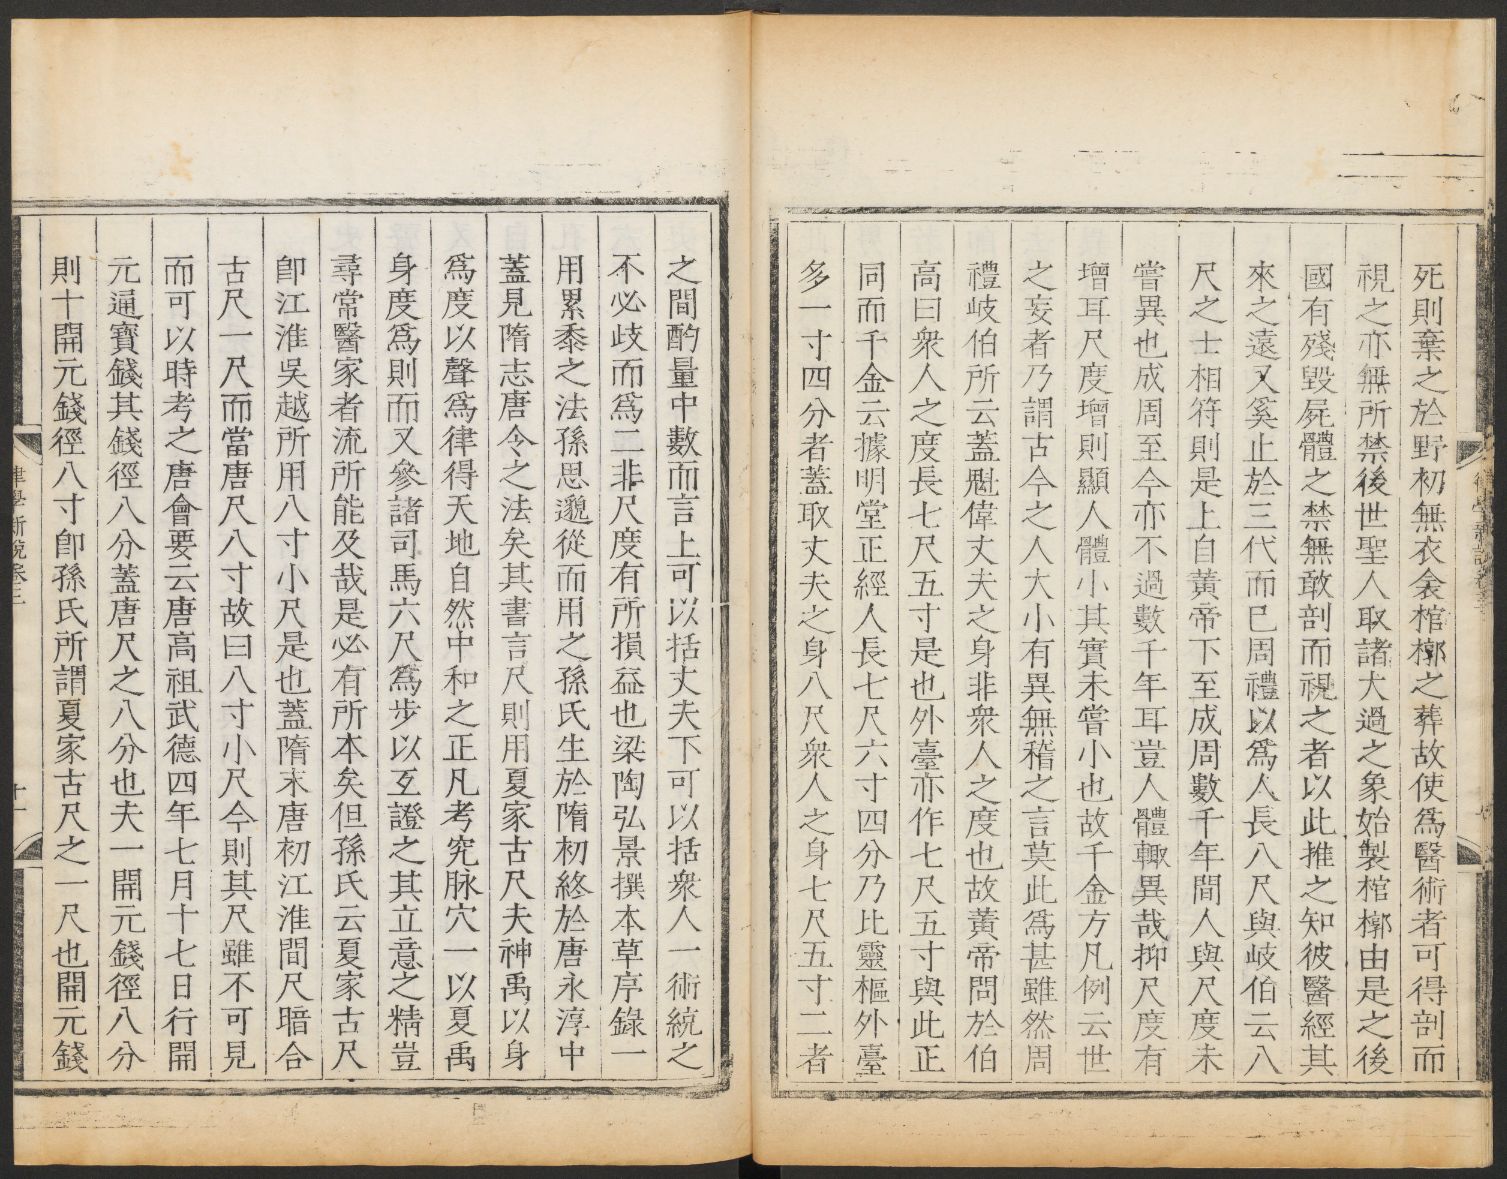 死則棄之於野初無衣衾棺槨之葬故使爲醫術者可得剖而
視之亦無所禁後世聖人取諸大過之象始製棺槨由是之後
國有殘毀屍體之禁無敢剖而視之者以此推之知彼醫經其
來之遠又奚止於三代而巳周禮以爲人長八尺與岐伯云八
尺之士相符則是上自黃帝下至成周數千年間人與尺度未
嘗異也成周至今亦不過數千年耳豈人體輙異哉抑尺度有
增耳尺度增則顯人體小其實未嘗小也故千金方凡例云世
之妄者乃謂古今之人大小有異無稽之言莫此爲甚雖然周
禮岐伯所云蓋魁偉丈夫之身非衆人之度也故黃帝問於伯
高曰衆人之度長七尺五寸是也外臺亦作七尺五寸與此正
同而千金云據明堂正經人長七尺六寸四分乃比靈樞外臺
多一寸四分者蓋取丈夫之身八尺衆人之身七尺五寸二者
之間酌量中數而言上可以括丈夫下可以括衆人一術統之
不必歧而爲二非尺度有所損益也梁陶弘景撰本草序錄一
用累黍之法孫思邈從而用之孫氏生於隋初終於唐永淳中
蓋見隋志唐令之法矣其書言尺則用夏家古尺夫神禹以身
爲度以聲爲律得天地自然中和之正凡考究脉穴一以夏禹
身度爲則而又參諸司馬六尺爲步以互證之其立意之精豈
尋常醫家者流所能及哉是必有所本矣但孫氏云夏家古尺
卽江淮吳越所用八寸小尺是也蓋隋末唐初江淮間尺暗合
古尺一尺而當唐尺八寸故曰八寸小尺今則其尺雖不可見
而可以時考之唐會要云唐高祖武德四年七月十七日行開
元通寶錢其錢徑八分蓋唐尺之八分也夫一開元錢徑八分
則十開元錢徑八寸卽孫氏所謂夏家古尺之一尺也開元錢
律學新說卷三
十一